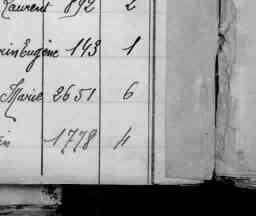 Laurent 892 2
Eugène 143 1
Marie 2651 6
1778 4